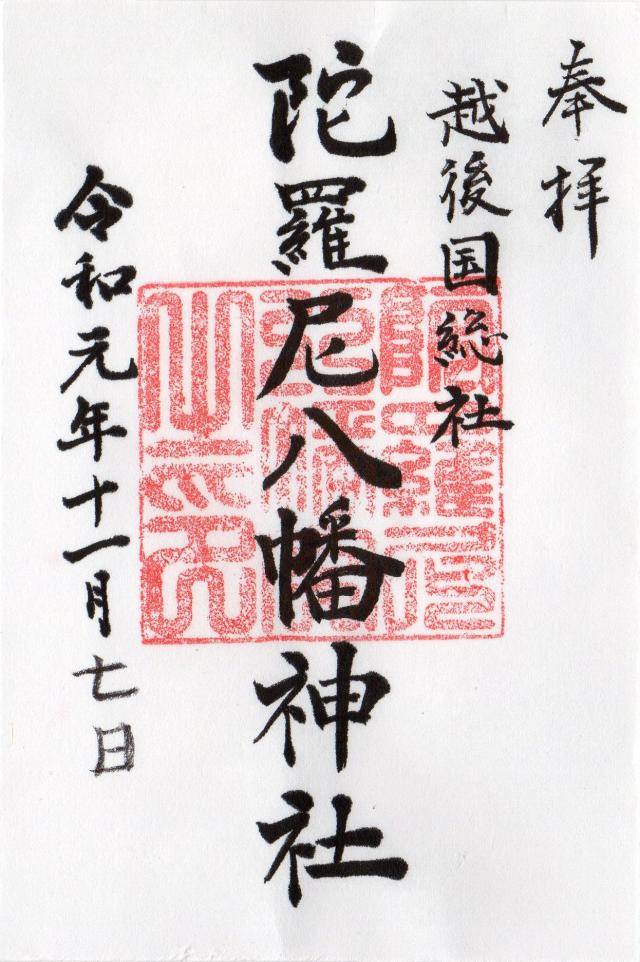 奉拝
越後国総社
陀羅尼八幡神社
令和元年十一月七日